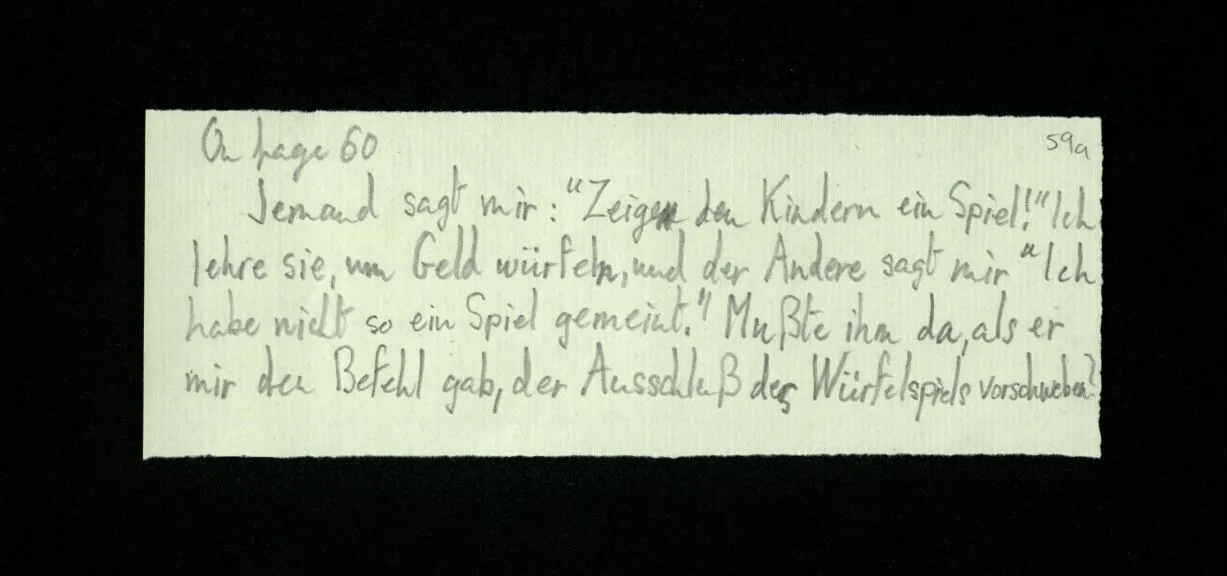 On page 60
59a
Jemand sagt mir: "Zeige den Kindern ein Spiel!" Ich
lehre sie, um Geld würfeln, und der Andere sagt mir "Ich
habe nicht so ein Spiel gemeint." Mußte ihm da, als er
mir den Befehl gab, der Ausschluß des Würfelspiels vorschweben?